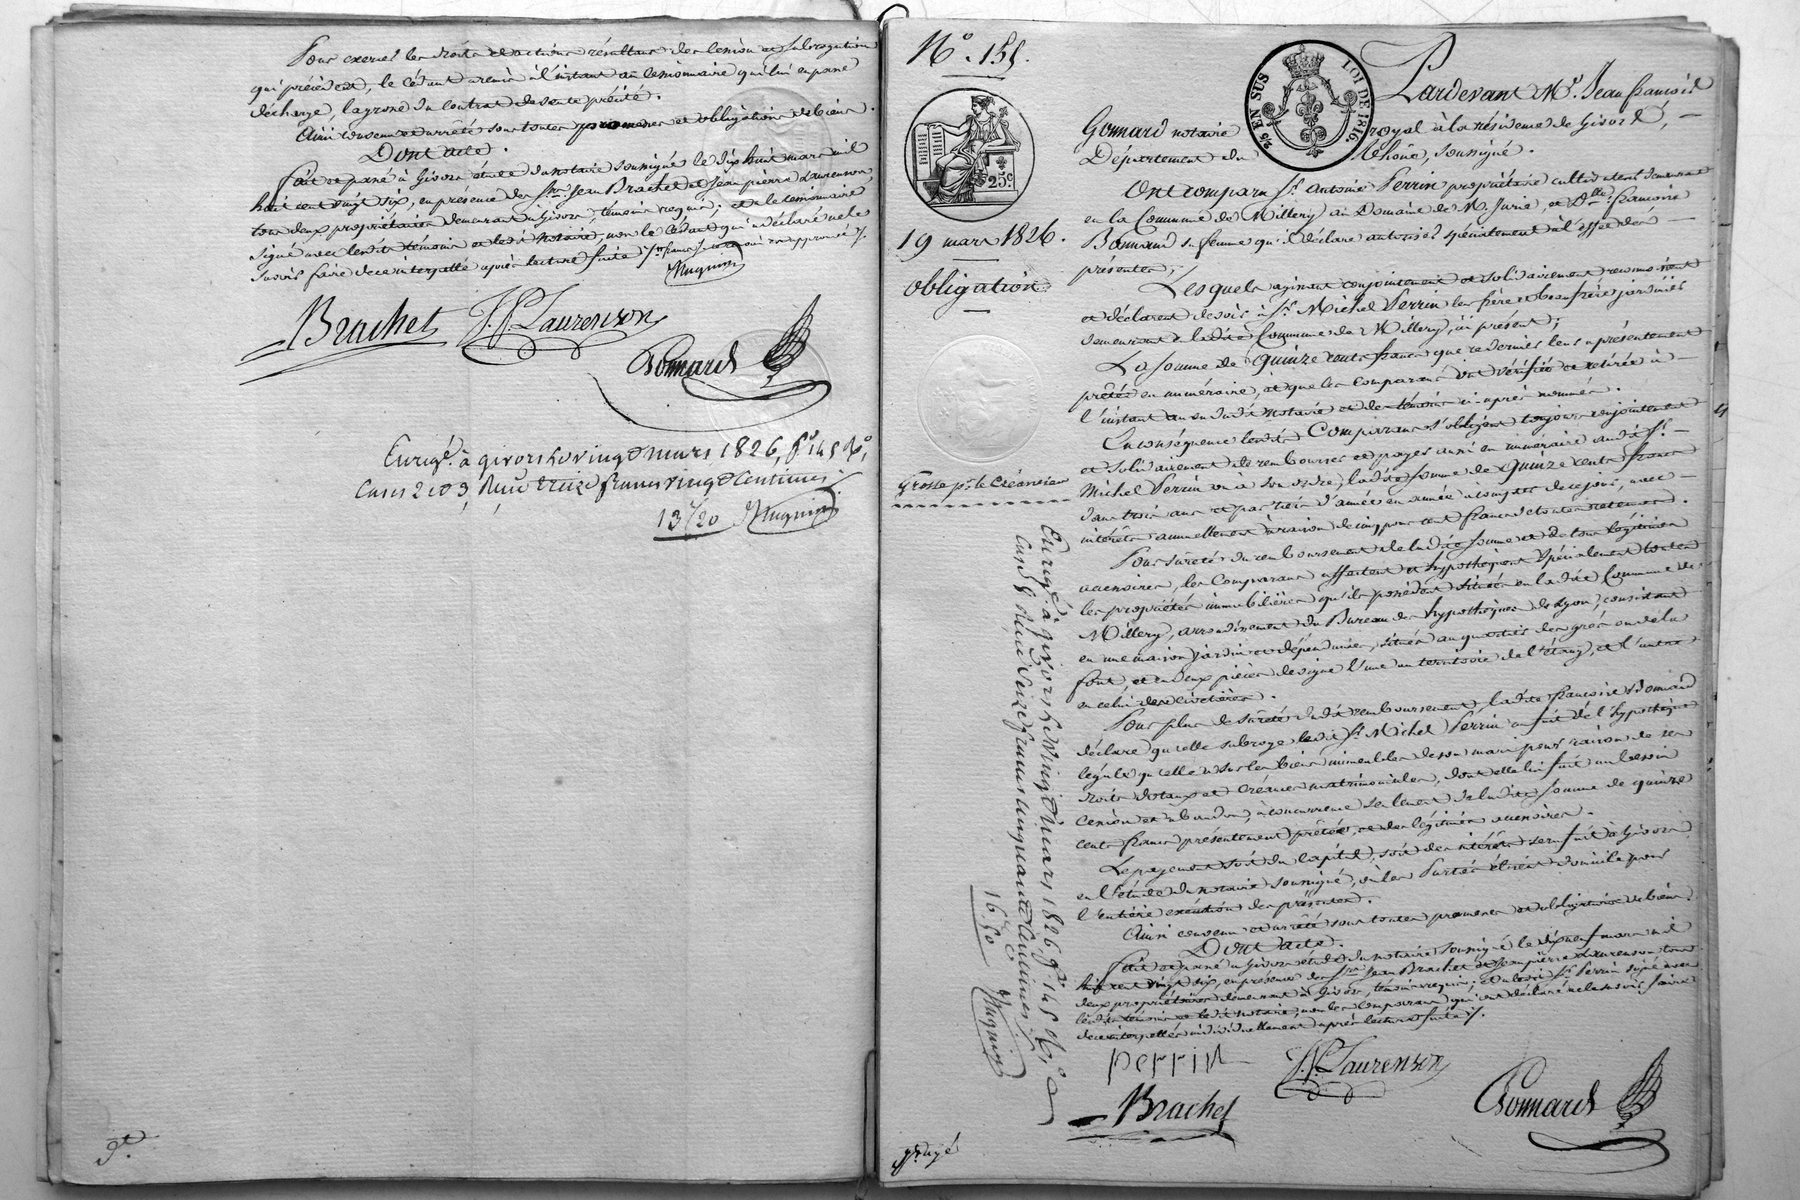 Pour exercer les droits et actions résultant des cession et subrogation
qui précèdent, le cédant a remis à l'instant au cessionnaire qui lui en passe
décharge, la grosse du contrat de vente précité.
Ainsi convenu et arrêté sous toutes promesses et obligations de biens.
Dont acte.
fait et passé à Givors étude du notaire soussigné le dix huit mars mil
huit cent vingt six, en présence des Srs. Jean Brachet et Jean pierre Laurenson,
tous deux propriétaires demeurant à Givors, témoins requis; et le cessionnaire
signé avec lesdits témoins et ledit notaire, non le cédant qui a déclaré ne le
savoir faire de ce interpellé après lecture faite
Brachet J. P. Laurenson
Gonnard
Enrigé. à givors le vingt mars 1826, f° 145 v°,
Cases 2 et 3, Reçu treize francs vingt Centimes
13f 20
N° 155.
2/10 EN SUS LOI DE 1816
25c
19 mars 1826.
obligation
Grosse pr. le Créancier
Pardevant Me. Jean françois
Gonnard notaire royal à la résidence de Givors,
Département du Rhône, soussigné.
Ont comparu Sr. Antoine Perrin propriétaire cultivateur demeurant
en la Commune de Millery au Domaine de M. Jurie, et Dlle. françoise
Bonnand sa femme qu'il déclare autoriser spécialement à l'effet des
présentes;
Lesquels agissant conjointement et solidairement reconnoissent
et déclarent devoir à Sr. Michel Perrin leur frère et beaufrère jardinier
demeurant à ladite Commune de Millery, ici présent;
La somme de Quinze cents francs que ce dernier leur a présentement
prêtée en numéraire, et que les comparans ont vérifiée et retirée à
l'instant au vu dudit notaire et des témoins ci-après nommés.
En conséquence lesdits Comparans s'obligent toujours conjointement
et solidairement de rembourser et payer aussi en numéraire audit Sr.
Michel Perrin ou à son ordre, ladite somme de Quinze cents francs
dans trois ans et par tiers d'année en année à compter de ce jour, avec
intérêts annuellement à raison de cinq pour cent francs de toutes retenues.
Pour sûreté du remboursement de ladite somme et de tous légitimes
accessoires, les Comparans affectent et hypothèquent spécialement toutes
les propriétés immobilières qu'ils possèdent situées en ladite Commune de
Millery, arrondissement du Bureau des hypothèques de Lyon, consistant
en une maison, jardin et dépendances, situés au quartier des grés ou de la
font et en deux pièces de vigne l'une au territoire de l'étang, et l'autre
en celui des civetières.
Pour plus de sûreté dudit remboursement, ladite françoise Bonnand
déclare qu'elle subroge ledit Sr. Michel Perrin en fait de l'hypothèque
légale qu'elle a sur les biens immeubles de son mari pour raison de ses
droits dotaux et créances matrimoniales, dont elle lui fait au besoin
cession et abandon, à concurrence seulement de ladite somme de quinze
cents francs présentement prêtée, et des légitimes accessoires.
Le payement soit du capital, soit des intérêts sera fait à Givors
en l'étude du notaire soussigné, où les Parties élisent domicile pour
l'entière exécution des présentes.
Ainsi convenu et arrêté sous toutes promesses et obligations de biens.
Dont acte.
fait et passé à Givors étude du notaire soussigné le dix neuf mars mil
huit cent vingt six, en présence des Srs. Jean Brachet et Jean pierre Laurenson tous
deux propriétaires demeurant à Givors, témoins requis; et ledit Sr. Perrin signé avec
lesdits témoins et ledit notaire, non les comparans qui ont déclaré ne le savoir faire
de ce interpellés individuellement après lecture faite
Perrin J. P. Laurenson
Brachet Gonnard
Enrigé. à givors le vingt mars 1826 f° 145 v°,
Case 4 Reçu seize francs cinquante Centimes
16f 50